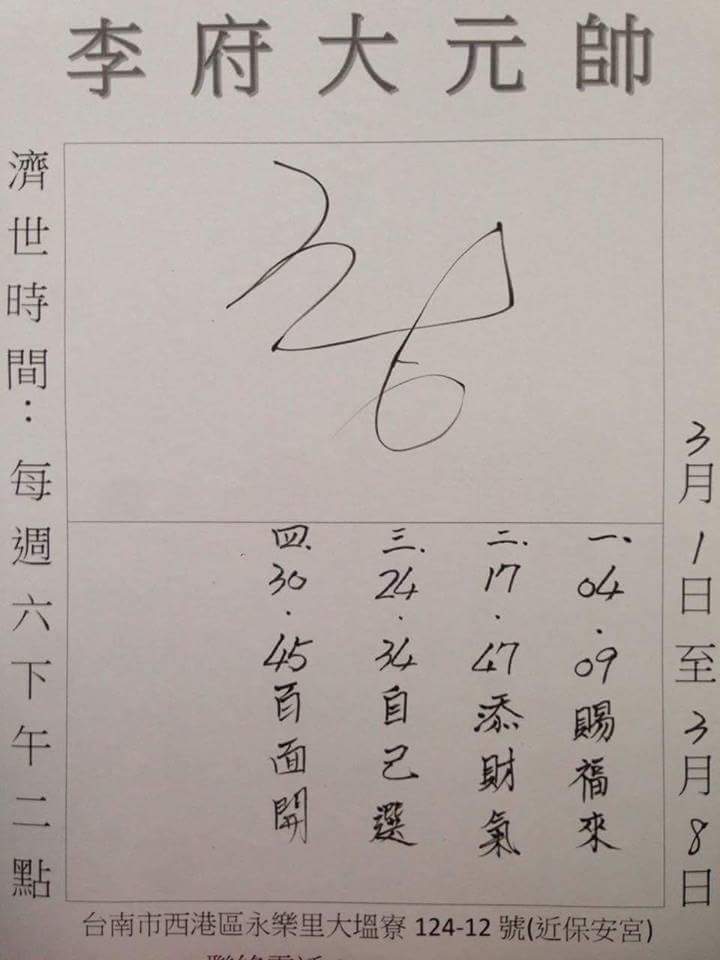 李府大元帥
3月1日至3月8日
一、04.09賜福來
二、17.47添財氣
三、24.34自己選
四、30.45百面開
濟世時間：每週六下午二點
台南市西港區永樂里大塭寮124-12號(近保安宮)